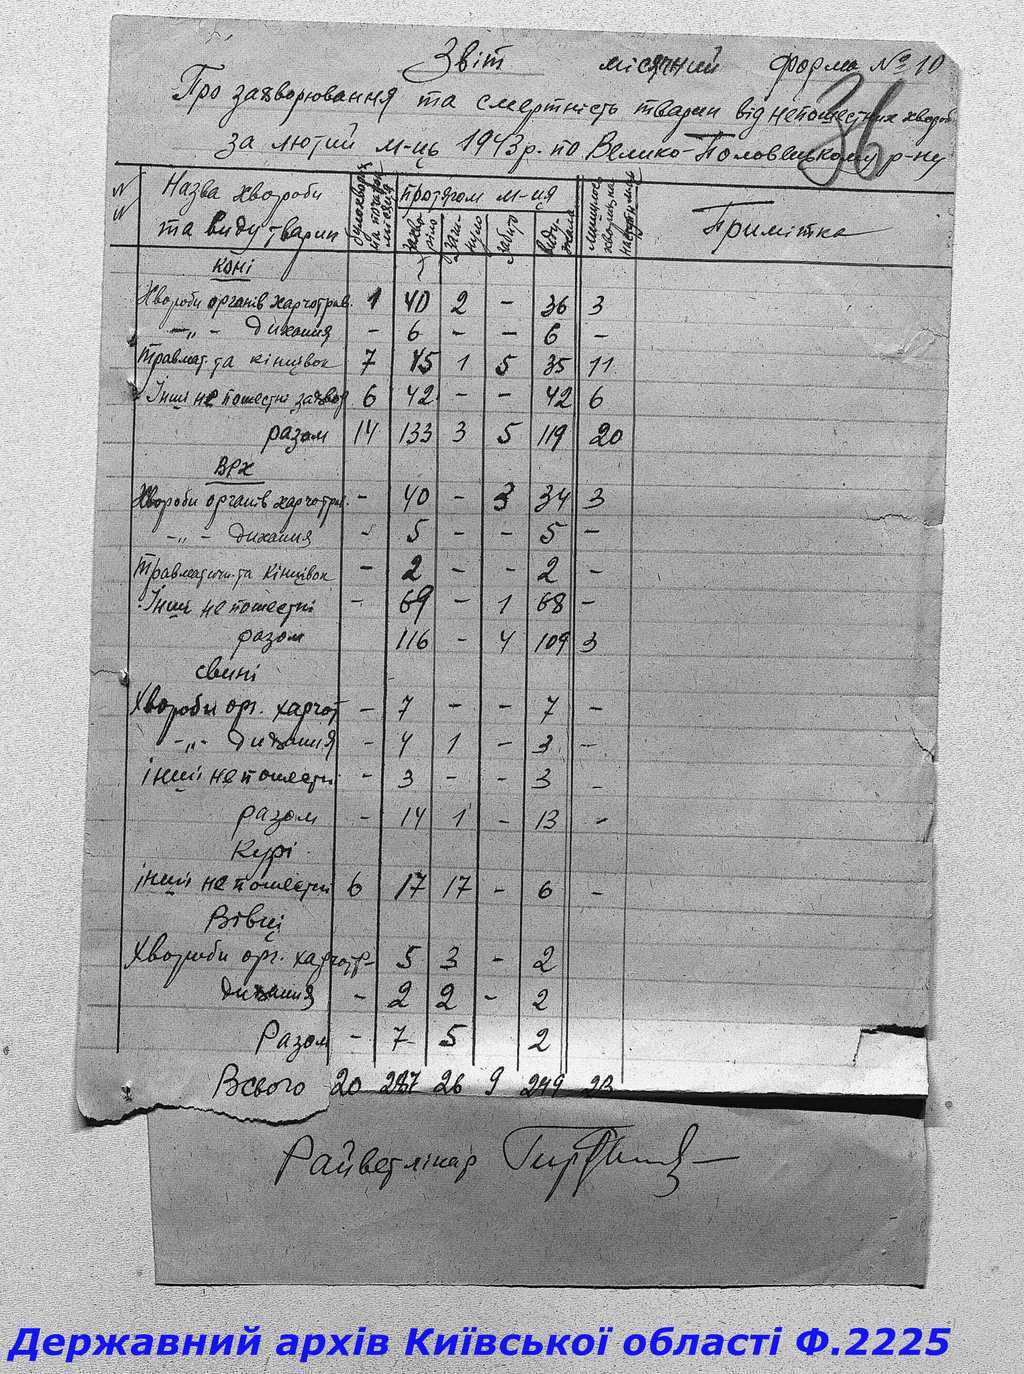 Звіт місячний форма № 10
36
Про захворювання та смертність тварин від непошестних хвороб
за лютий м-ць 1943 р. по Велико-Половецькому р-ну
№№ Назва хвороби та виду тварин було хворих на початок місяця протягом м-ця захворіло загинуло забито видужало лишилось хворих на наступн. м-ць Примітка
коні
Хвороби органів харчотрав. 1 40 2 - 36 3
-„- дихання - 6 - - 6 -
Травмат. та кінцівок 7 45 1 5 35 11
Інші не пошестні захвор 6 42 - - 42 6
разом 14 133 3 5 119 20
ВРХ
Хвороби органів харчотрав. - 40 - 3 34 3
-„- дихання - 5 - - 5 -
Травматичн. та кінцівок - 2 - - 2 -
Інші не пошестні - 69 - 1 68 -
разом 116 - 4 109 3
свині
Хвороби орг. харчот - 7 - - 7 -
-„- дихання - 4 1 - 3 -
інші не пошестні - 3 - - 3 -
разом - 14 1 - 13 -
Курі
інші не пошестні 6 17 17 - 6 -
Вівці
Хвороби орг. харчотр- 5 3 - 2
дихання - 2 2 - 2
Разом - 7 5 2
Всього 20 287 26 9 249 23
Райветлікар
Державний архів Київської області Ф.2225